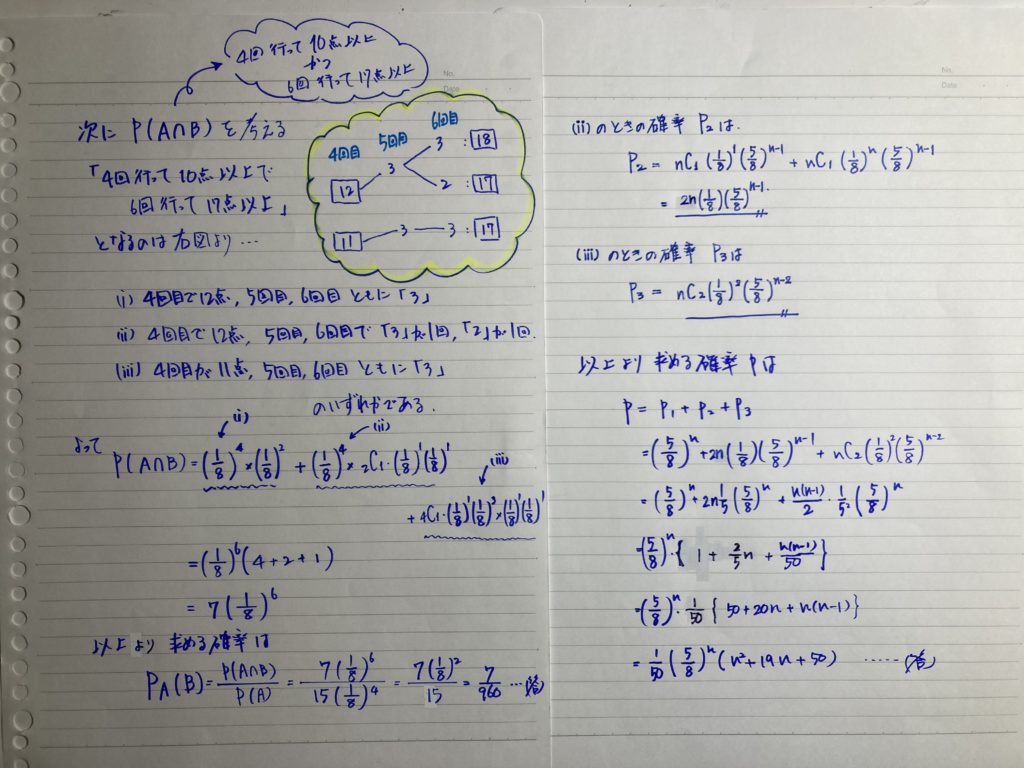 4回行って10点以上
かつ
6回行って17点以上
No.
Date
次に P(A∩B) を考える
「4回行って10点以上で
6回行って17点以上」
となるのは右図より…
4回目 5回目 6回目
3 : 18
12 3
2 : 17
11 3 3 : 17
(i) 4回目で12点, 5回目, 6回目ともに「3」
(ii) 4回目で12点, 5回目, 6回目で「3」が1回,「2」が1回.
(iii) 4回目が11点, 5回目, 6回目ともに「3」
のいずれかである.
(i) (ii)
よって
P(A∩B) = (1/8)^4 × (1/8)^2 + (1/8)^4 × 2C1・(1/8)^1(1/8)^1
(iii)
+ 4C1・(1/8)^1(1/8)^3 × (1/8)^1(1/8)^1
= (1/8)^6 (4+2+1)
= 7(1/8)^6
以上より求める確率は
PA(B) = P(A∩B)/P(A) = 7(1/8)^6/15(1/8)^4 = 7(1/8)^2/15 = 7/960 …(答)
No.
Date
(ii) のときの確率 P2 は.
P2 = nC1(1/8)^1(5/8)^n-1 + nC1(1/8)^n(5/8)^n-1
= 2n(1/8)(5/8)^n-1.
(iii) のときの確率 P3 は
P3 = nC2(1/8)^2(5/8)^n-2
以上より求める確率 P は
P = P1 + P2 + P3
= (5/8)^n + 2n(1/8)(5/8)^n-1 + nC2(1/8)^2(5/8)^n-2
= (5/8)^n + 2n 1/5 (5/8)^n + n(n-1)/2・1/5^2(5/8)^n
= (5/8)^n・{1 + 2/5 n + n(n-1)/50}
= (5/8)^n・1/50 {50+20n+n(n-1)}
= 1/50 (5/8)^n (n^2+19n+50) ……(答)